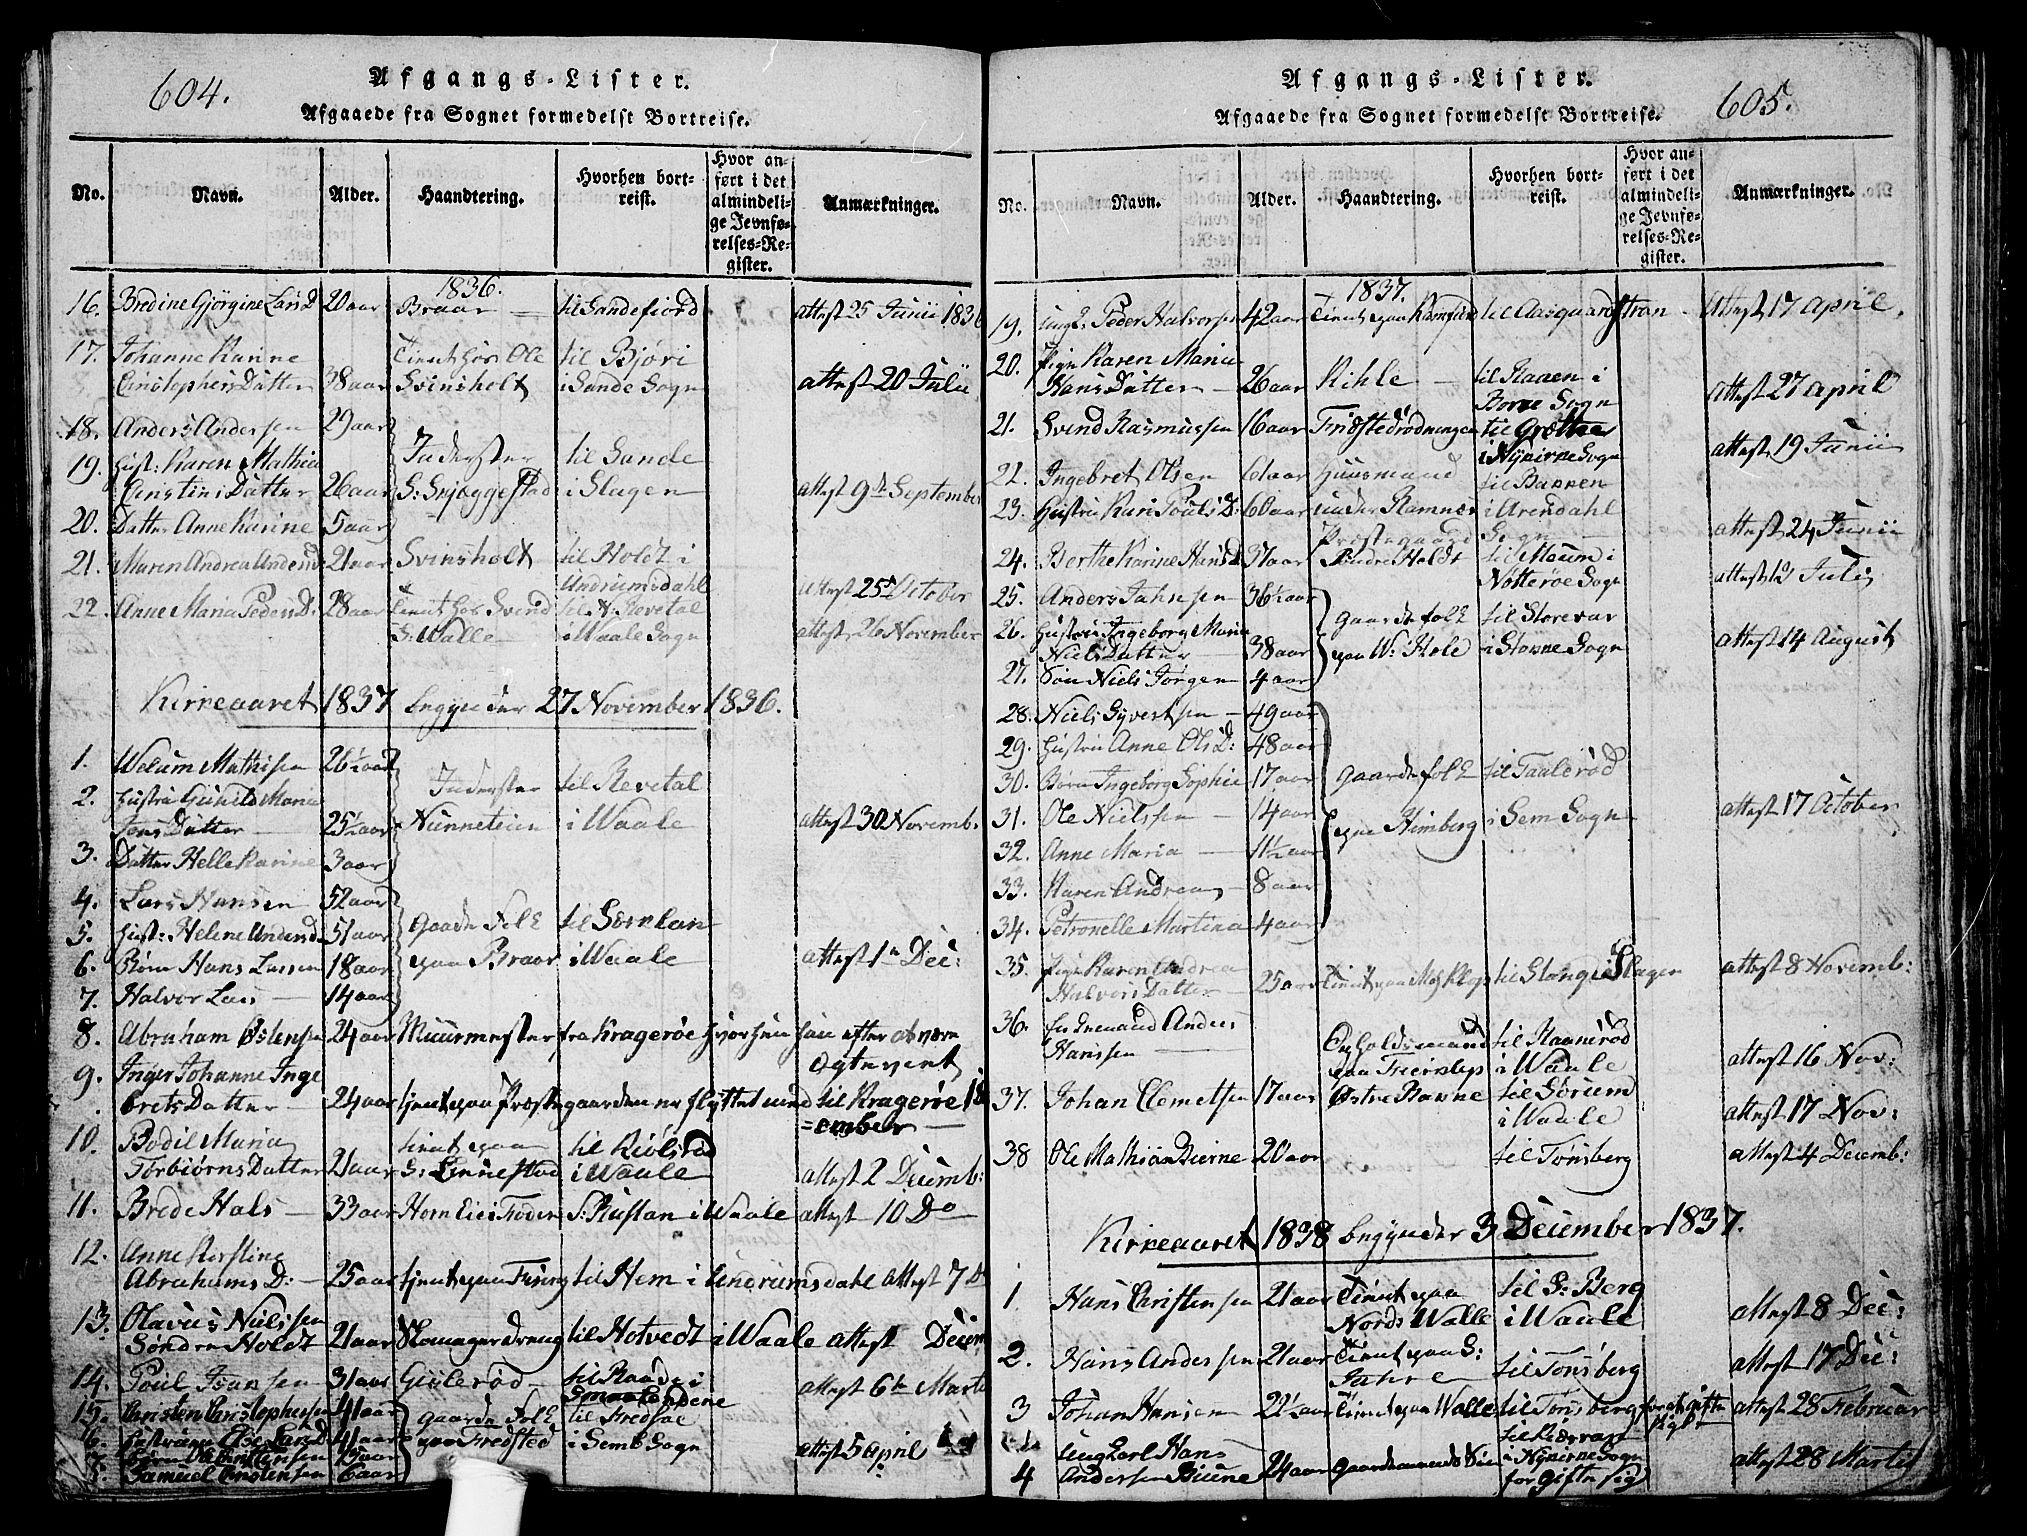 604.
Afgangs-Lister.
Afgaaede fra Sognet formedelst Bortreise.
No. Navn. Alder. Haandtering. Hvorhen bort-reist. Hvor an-ført i det almindeli-ge Jevnfø-relses-Re-gister. Anmærkninger.
1836.
16. Bredine Gjørgine LarsD 20 aar Braar til Sandefiord attest 25 Junii 1836
17. Johanne Karine
Christophers Datter 38 aar Tient hos Ole Svinsholt til Bjøri i Sande Sogn attest 20 Julii
18. Anders Andersen 29 aar
19. Hust: Karen Mathia
Christins Datter 26 aar Inderster S: Snjeggestad til Sande i Slagen attest 9de September
20. Datter Anne Karine 5 aar
21. Maren Andrea AndersD 21 aar Svinsholt til Holdt i Undrumsdahl attest 25 October
22. Anne Maria PedersD: 28 aar Tient hos Svend S: Walle til N: Revetal i Waale Sogn attest 26 November
Kirkeaaret 1837 begynder 27 November 1836.
1. Welum Mathisen 26½ aar
2. Hustru Gunild Maria
Jens Datter 25½ aar Inderster Nunneteien til Revetal i Waale attest 30 Novemb.
3. Datter Helle Karine 3 aar
4. Lars Hansen 52 aar
5. Hust: Helene AndersD 51 aar Gaarde Folk paa Braar til Sørnlan i Waale attest 1te Dec:
6. Børn Hans Larssen 18 aar
7. Halvor Lars 14 aar
8. Abraham Østensen 24 aar Muurmester fra Kragerøe hvorhen han efter at være
9. Inger Johanne Inge ægteviet
brets Datter 24 aar tjent paa Præstegaarden er flyttet med til Kragerøe 18
=cember
10. Bodil Maria
Torbiørns Datter 21 aar tient paa S: Linnestad til Kiølsrød i Waale attest 2 Decemb:
11. Brede Hals 33 aar Horn Eie i Foden S: Rustan i Waale attest 10 Do
12. Anne Kirstine
Abrahams D: 25 aar tjent paa Freberg til Hem i Undrumsdahl attest 7 D
13. Olavus Nielssen
Søndre Holdt 21 aar Skomagerdreng til Hotvedt i Waale attest Decem
14. Poul Ivarsen 31 aar Giulerød til Raade i Smaalendene attest 6te Marts
15. Christen Christophersen 41 aar
16. Hustru Else LarsD 41 aar Gaarde Folk paa Fredsted til Fredsal i Semb Sogn attest 5 april
8. Samuel Christensen 6 aar
605.
Afgangs-Lister.
Afgaaede fra Sognet formedelst Bortreise.
No. Navn. Alder. Haandtering. Hvorhen bort-reist. Hvor an-ført i det almindeli-ge Jevnfø-relses-Re-gister. Anmærkninger.
1837.
19. Ungk: Peder Halvorsen 42 aar Tient paa Ramsund til Aasgaardstran attest 17 April.
20. Pige Karen Maria
Hans Datter 26 aar Kihle til Raaen i Borre Sogn attest 27 april
21. Svend Rasmussen 16 aar Fræstedrødningen til Grøtten i Nykirke Sogn attest 19 Junii
22. Ingebret Olsen 61 aar Huusmand til Bakken
23. Hustru Kari PoulsD: 60 aar under Ramnæs Præstegaard i Arendahl Sogn attest 24 Junii
24. Berthe Karine HansD 37 aar Søndre Holdt til Meum i Nøtterøe Sogn attest 2 Juli
25. Anders Jahnsen 36½ aar
26. Hustru Ingeborg Maria
Niels Datter 38 aar Gaardefolk paa W: Hole til Storevar i Stokke Sogn attest 14 August
27. Søn Niels Jørgen 4 aar
28. Niels Syvertsen 49 aar
29. Hustru Anne OlsD: 48 aar
30. Børn Ingeborg Sophie 17 aar Gaardefolk til Taalerød
31. Ole Nielssen 14 aar paa Himberg i Sem Sogn attest 17 October
32. Anne Maria 11½ aar
33. Karen Andrea 8 aar
34. Petronelle Martina 4 aar
35. Pige Karen Andrea
Halvors Datter 25 aar Tient paa Klop til Stang i Slagen attest 8 Novemb:
36. Enkemand Anders
Hanssen Opholdsmand paa Freirstep til Haanerød i Waale attest 16 Nov:
37. Johan Clemetsen 17 aar Østre Ravne til Sørum i Waale attest 17 Nov:
38 Ole Mathias Bierne 20 aar til Tønsberg attest 4 Decemb:
Kirkeaaret 1838 begynder 3 December 1837.
1 Hans Christensen 21 aar Tient paa Nords Walle til S: Berg i Waale attest 8 Dec:
2. Hans Andersen 21 aar Tient paa S: Jahre til Tønsberg attest 17 Dec:
3 Johan Hansen 22½ aar Tient paa Walle til Tønsberg for at gifte sig attest 28 Februar
4 Ungkarl Hans
Andersen Bierne 24 aar Gaardmands Søn til Kierrag i Nykirke Sogn for gifte sig attest 28 Martii